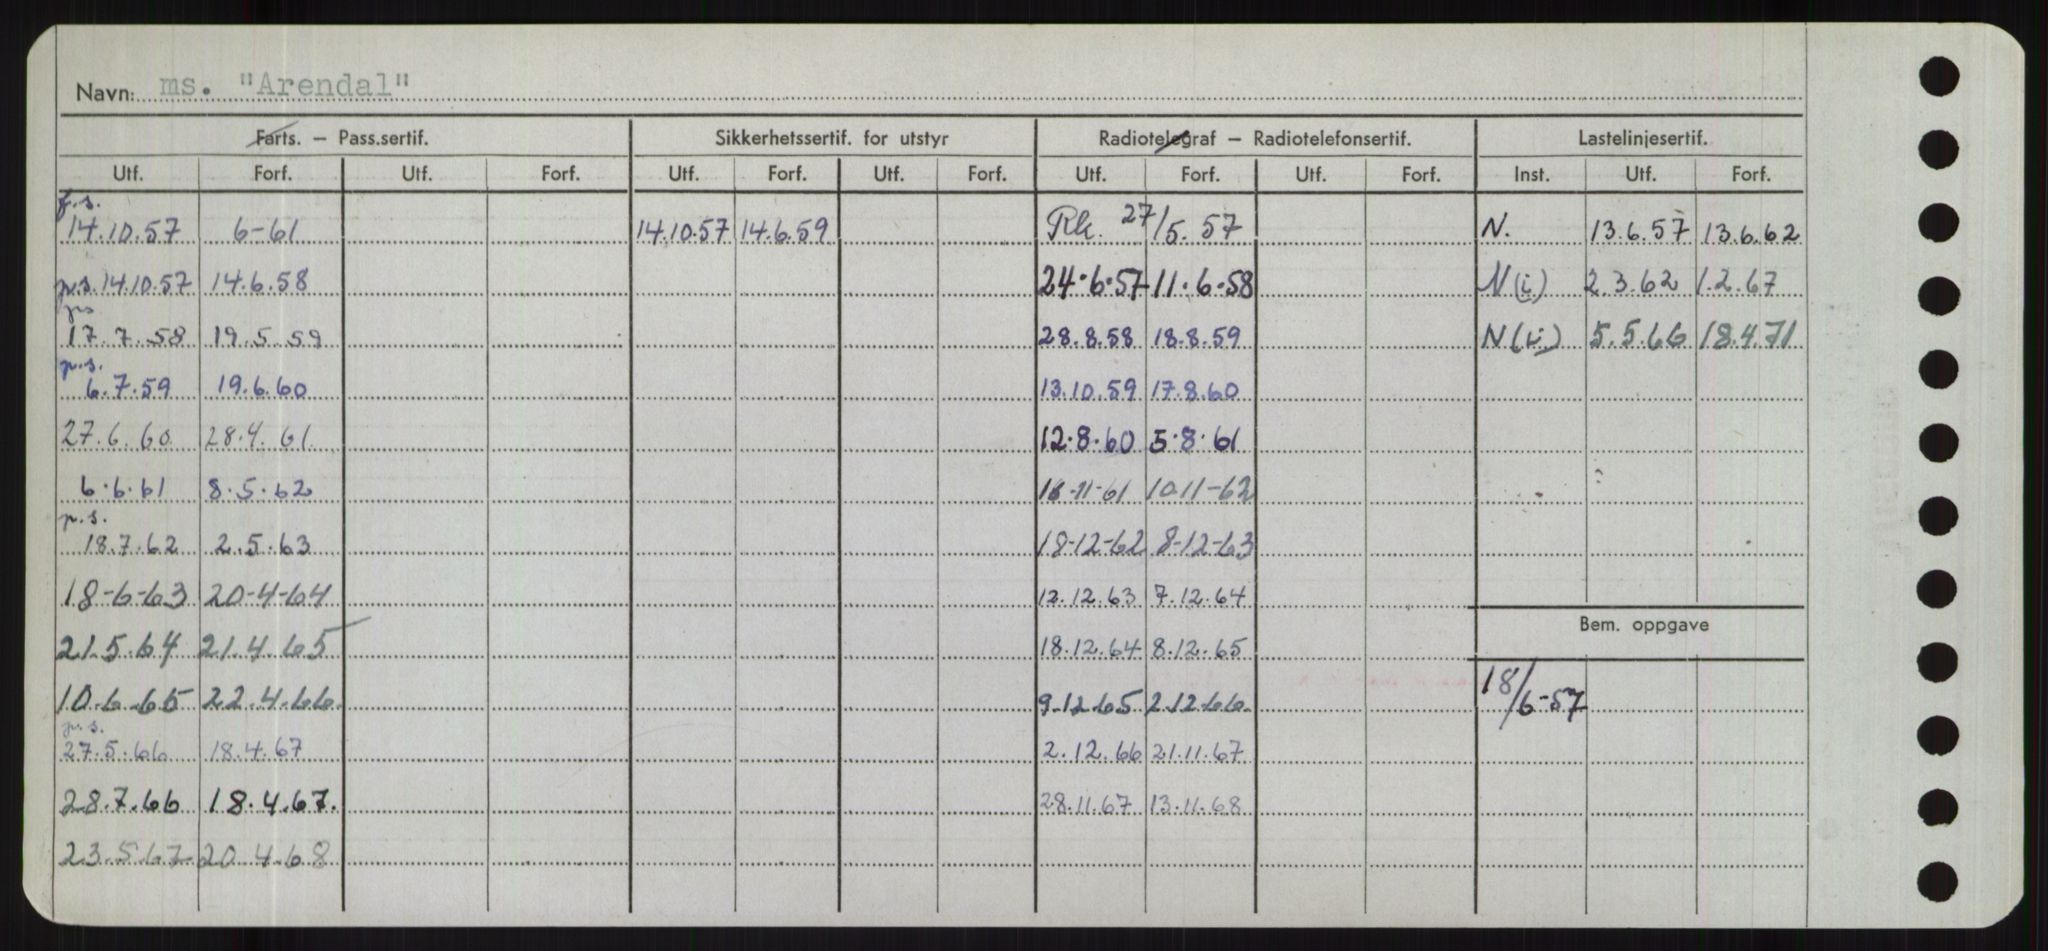 Navn: ms. "Arendal"
Farts. — Pass.sertif. Sikkerhetssertif. for utstyr Radiotelegraf — Radiotelefonsertif. Lastelinjesertif.
Utf. Forf. Utf. Forf. Utf. Forf. Utf. Forf. Utf. Forf. Utf. Forf. Inst. Utf. Forf.
f.s.
14.10.57 6-61 14.10.57 14.6.59 Rk. 27/5.57 N. 13.6.57 13.6.62
p.s. 14.10.57 14.6.58 24.6.57 11.6.58 N(i) 2.3.62 1.2.67
ps
17.7.58 19.5.59 28.8.58 18.8.59 N(i) 5.5.66 18.4.71
p.s.
6.7.59 19.6.60 13.10.59 17.8.60
27.6.60 28.4.61 12.8.60 5.8.61
6.6.61 8.5.62 16-11-61 10-11-62
p.s.
18.7.62 2.5.63 18-12-62 8-12-63
18-6-63 20-4-64 12.12.63 7.12.64
Bem. oppgave
21.5.64 21.4.65 18.12.64 8.12.65
10.6.65 22.4.66. 9.12.65 2.12.66. 18/6-57
p.s.
27.5.66 18.4.67 2.12.66 21.11.67
28.7.66 18.4.67. 28.11.67 13.11.68
23.5.67 20.4.68